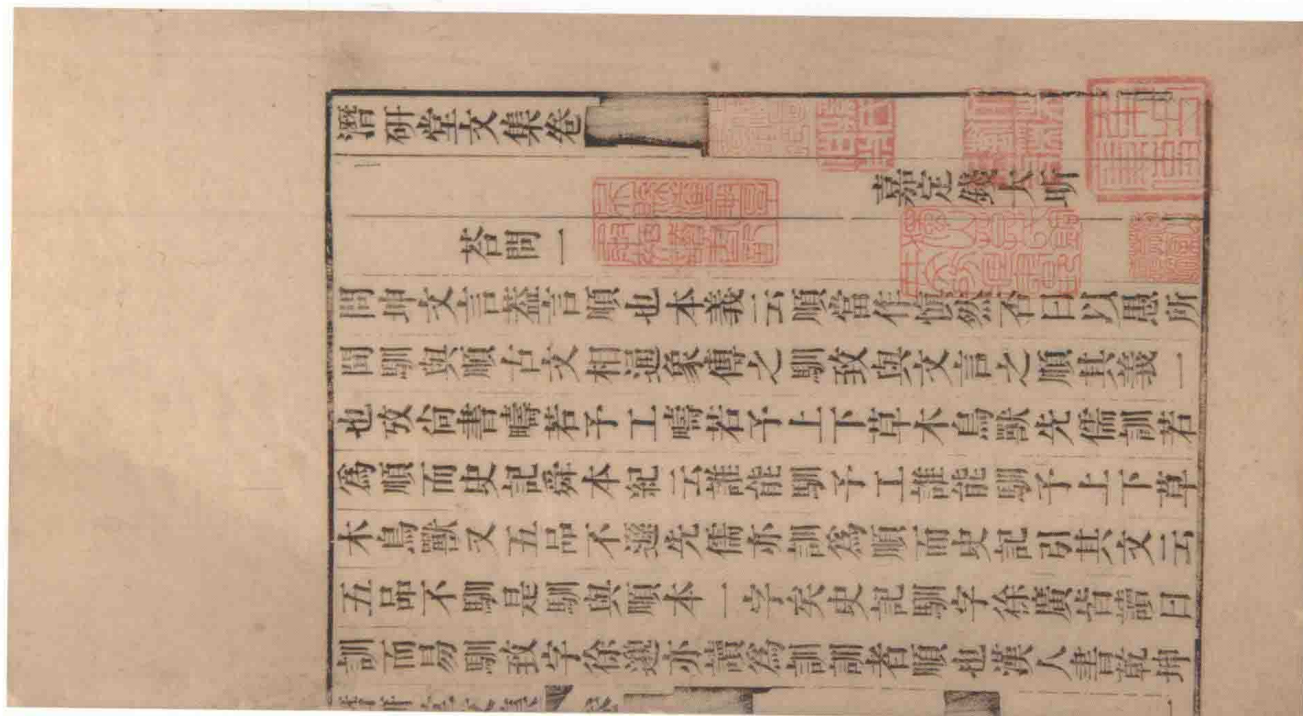 潛研堂文集卷
嘉定錢大昕
荅問一
問坤文言蓋言順也本義云順當作愼然否曰以愚所
聞馴與順古文相通象傳之馴致與文言之順其義一
也攷尚書疇若予工疇若予上下草木鳥獸先儒訓若
爲順而史記舜本紀云誰能馴予工誰能馴予上下草
木鳥獸又五品不遜先儒亦訓爲順而史記引其文云
五品不馴是馴與順本一字矣史記馴字徐廣皆讀曰
訓而易馴致字徐邈亦讀爲訓訓者順也漢人書乾坤